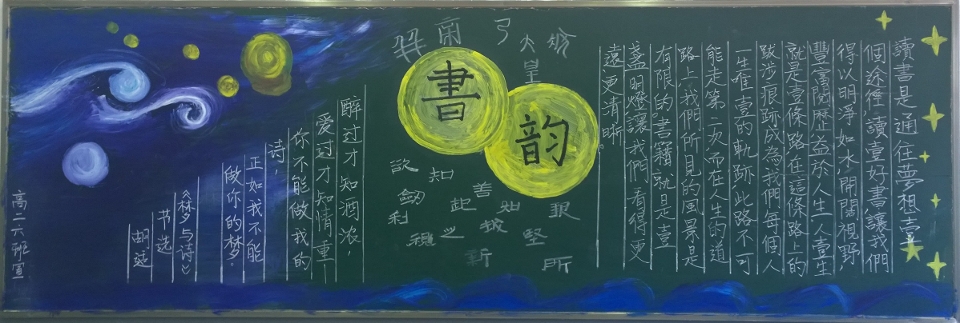 讀書是通往夢想壹
個途徑,讀壹好書讓我們
得以明淨如水,開闊視野,
豐富閱歷益於人生一人壹生
就是壹條路在這條路上的
跋涉痕跡成為我們每個人
一生唯壹的軌跡,此路不可
能走第二次而在人生的道
路上我們所見的風景是
有限的。書籍就是壹
盞明燈讓我們看得更
遠更清晰。
書
韵
欲
知
善
知
堅
所
起
之
新
利
醉过才知酒浓,
爱过才知情重—
你不能做我的
诗,
正如我不能
做你的梦。
《梦与诗》
书选
胡适
高二六班宣